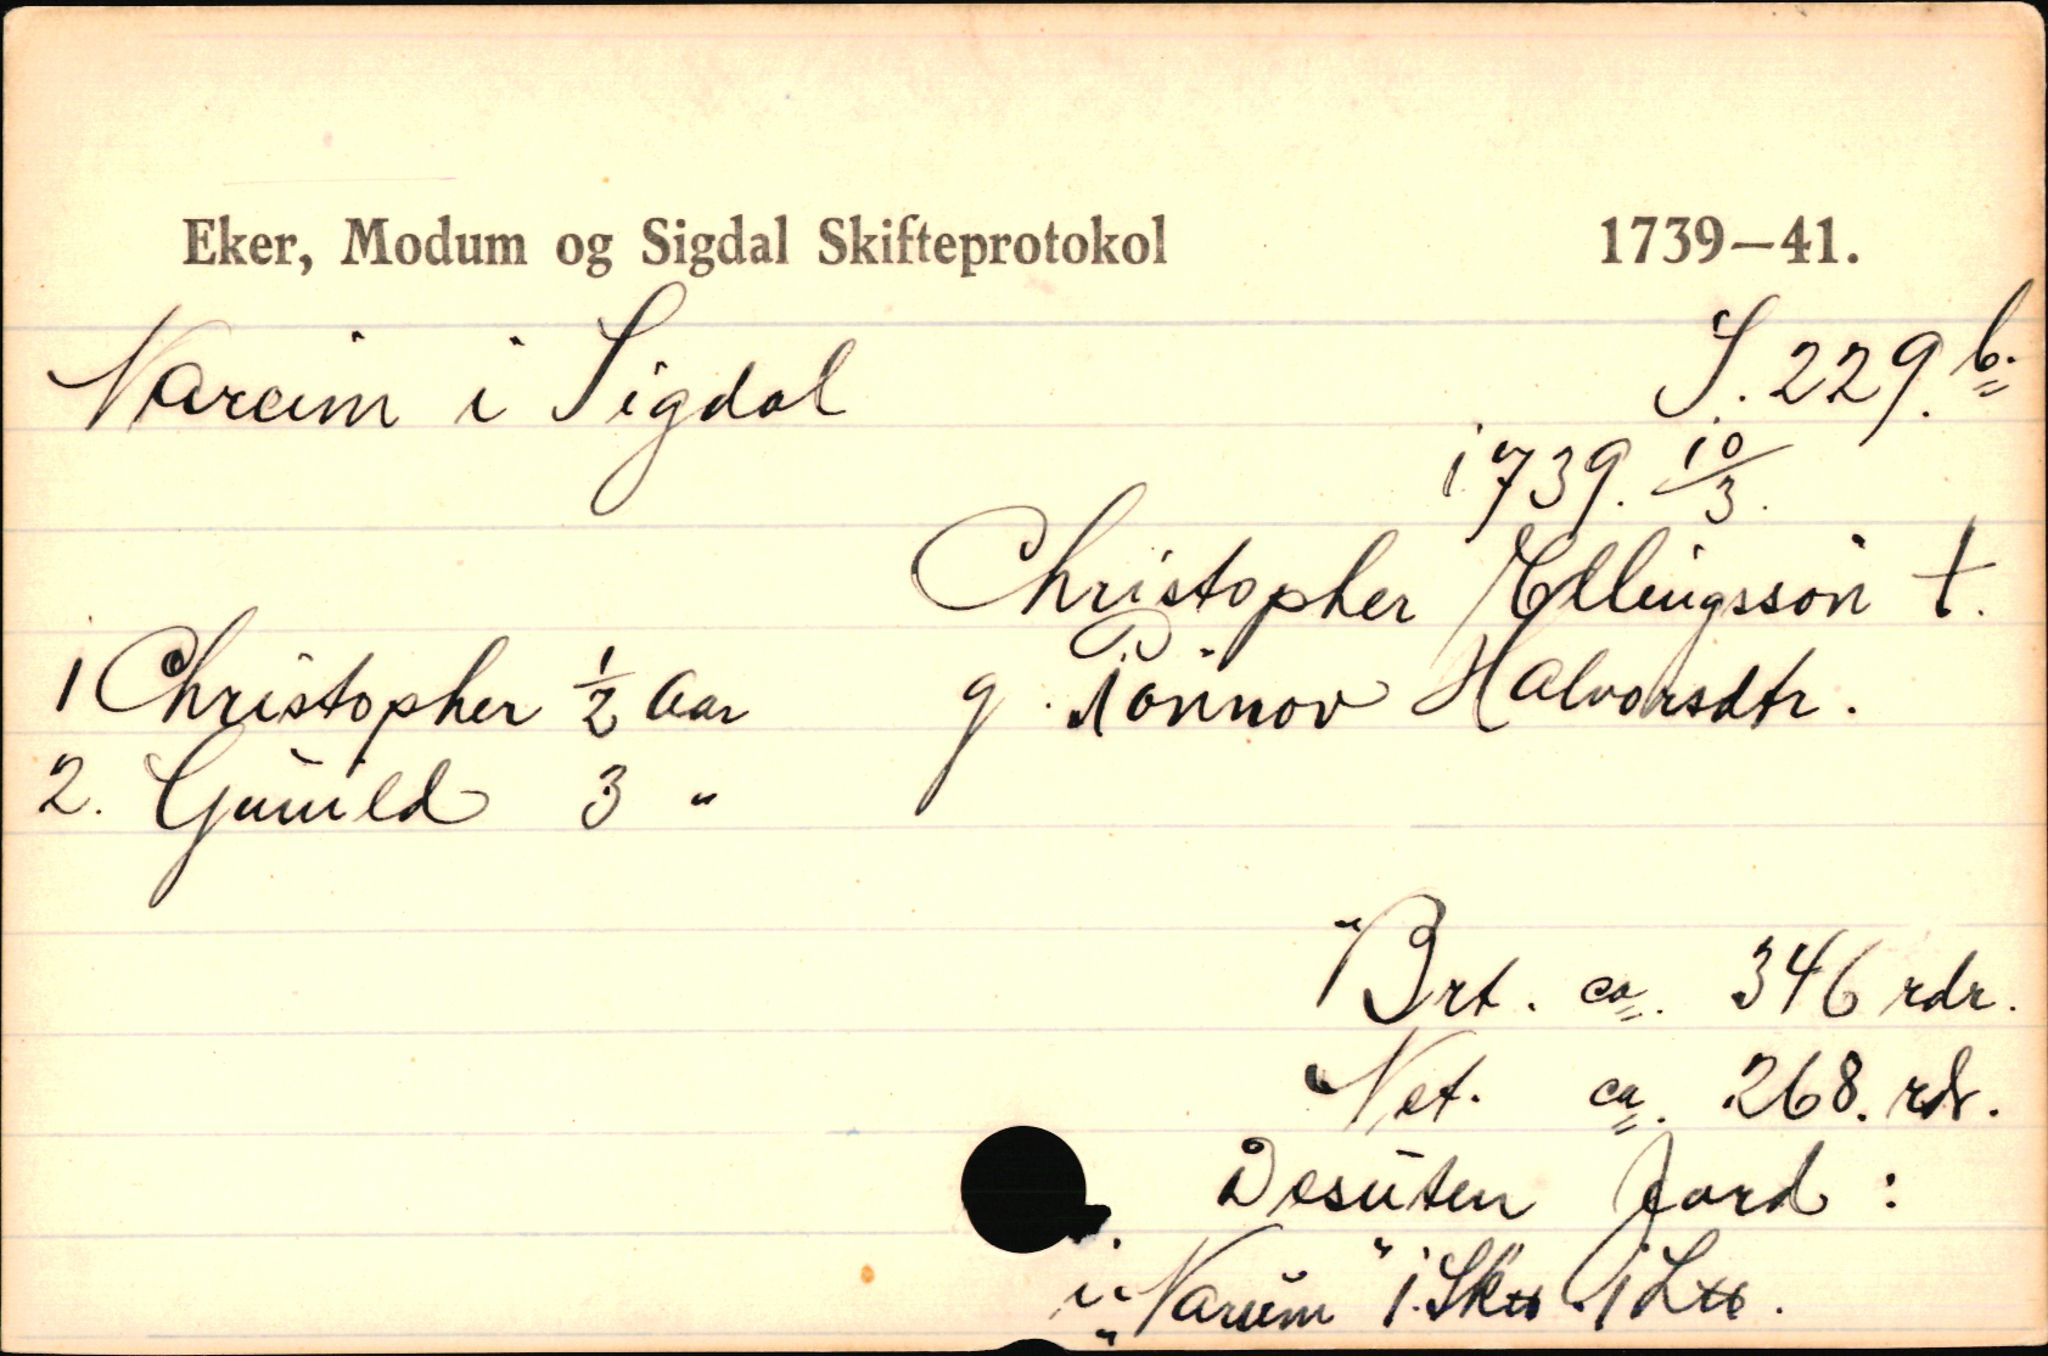 Eker, Modum og Sigdal Skifteprotokol 1739–41.
Nareim i Sigdal S. 229 b.
1739. 10/3.
Christopher Ellingssön †.
1 Christopher 1/2 Aar g. Rönnov Halvorsdtr.
2. Gunild 3 "
Brt. ca. 346 rdr.
Net. ca. 268. rdr.
Desuten Jord:
i "Narum" 1. Sk℔ . 1 L℔.